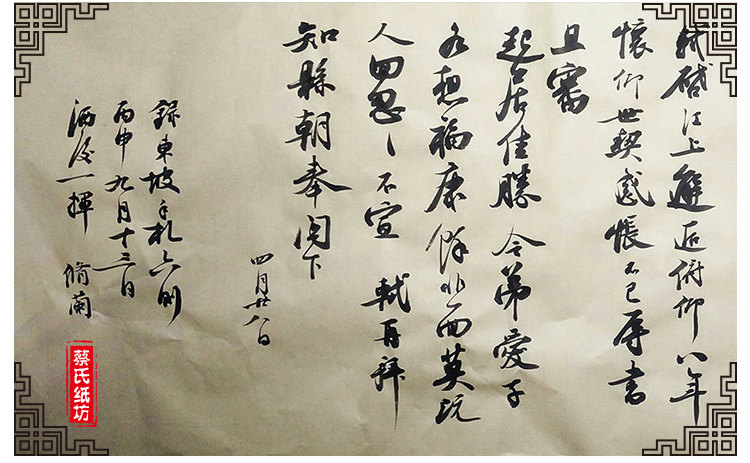 軾啟江上邂逅俯仰八年
懷仰世契感悵不已辱書
且審
起居佳勝 令弟愛子
各想福康餘非面莫
人回忽〻不宣 軾再拜
知縣朝奉閣下
四月廿八日
錄東坡手札六則
丙申九月十三日
酒後一揮 脩蘭
蔡氏纸坊